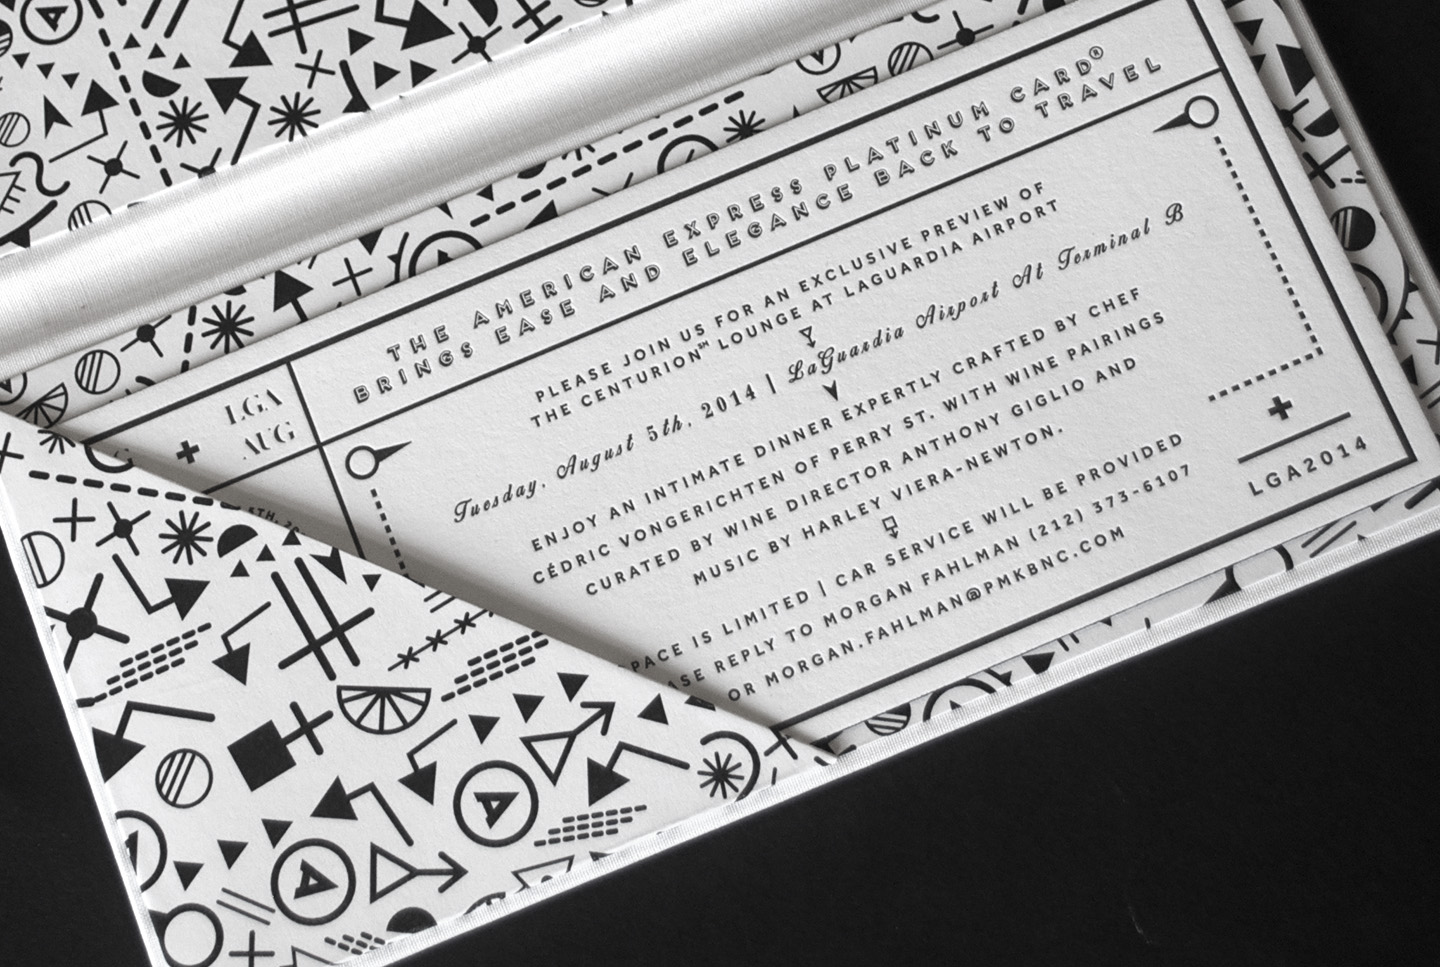 THE AMERICAN EXPRESS PLATINUM CARD®
BRINGS EASE AND ELEGANCE BACK TO TRAVEL
LGA
AUG
PLEASE JOIN US FOR AN EXCLUSIVE PREVIEW OF
THE CENTURION℠ LOUNGE AT LAGUARDIA AIRPORT
Tuesday, August 5th, 2014 | LaGuardia Airport At Terminal B
ENJOY AN INTIMATE DINNER EXPERTLY CRAFTED BY CHEF
CÉDRIC VONGERICHTEN OF PERRY ST. WITH WINE PAIRINGS
CURATED BY WINE DIRECTOR ANTHONY GIGLIO AND
MUSIC BY HARLEY VIERA-NEWTON.
SPACE IS LIMITED | CAR SERVICE WILL BE PROVIDED
ASE REPLY TO MORGAN FAHLMAN (212) 373-6107
OR MORGAN.FAHLMAN@PMKBNC.COM
LGA2014